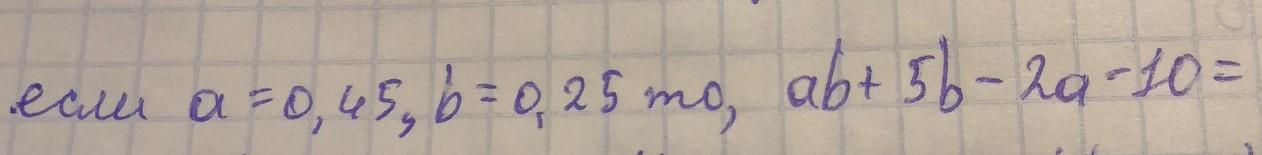 если a = 0,45, b = 0,25 то, ab + 5b - 2a - 10 =